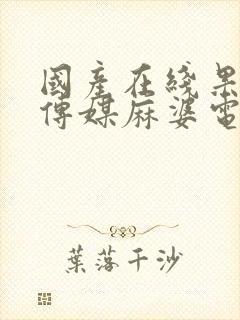 國產在綫果
傳媒麻婆電
葉落千沙